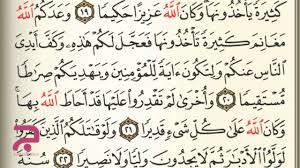 كَثِيرَةً يَأْخُذُونَهَا وَكَانَ اللَّهُ عَزِيزًا حَكِيمًا ١٩ وَعَدَكُمُ اللَّهُ
مَغَانِمَ كَثِيرَةً تَأْخُذُونَهَا فَعَجَّلَ لَكُمْ هَٰذِهِ وَكَفَّ أَيْدِىَ
النَّاسِ عَنكُمْ وَلِتَكُونَ ءَايَةً لِّلْمُؤْمِنِينَ وَيَهْدِيَكُمْ صِرَٰطًا
مُّسْتَقِيمًا ٢٠ وَأُخْرَىٰ لَمْ تَقْدِرُوا۟ عَلَيْهَا قَدْ أَحَاطَ اللَّهُ بِهَا
وَكَانَ اللَّهُ عَلَىٰ كُلِّ شَىْءٍ قَدِيرًا ٢١ وَلَوْ قَٰتَلَكُمُ الَّذِينَ كَفَرُوا۟
لَوَلَّوُا۟ الْأَدْبَٰرَ ثُمَّ لَا يَجِدُونَ وَلِيًّا وَلَا نَصِيرًا ٢٢